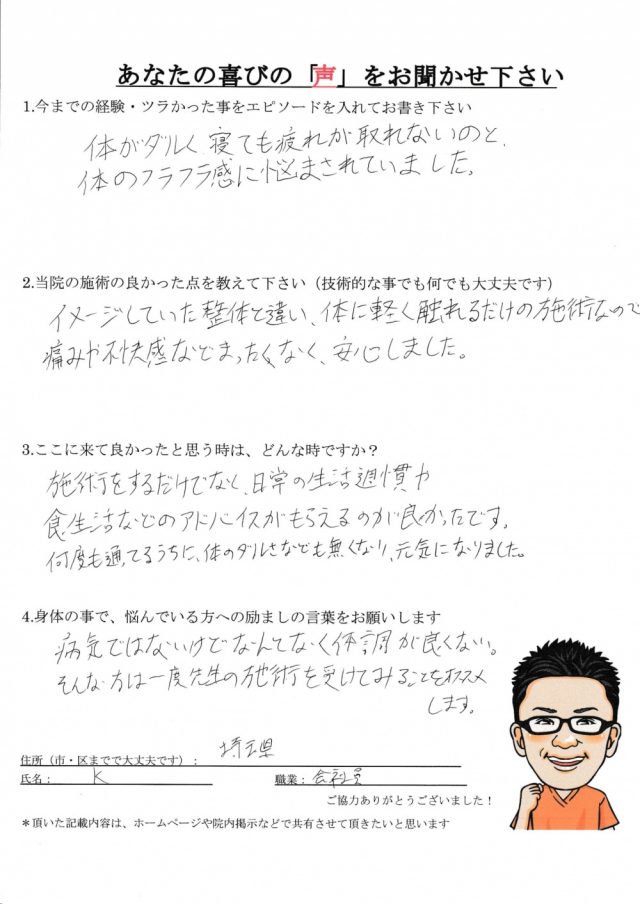 あなたの喜びの「声」をお聞かせ下さい
1.今までの経験・ツラかった事をエピソードを入れてお書き下さい
体がダルく寝ても疲れが取れないのと、
体のフラフラ感に悩まされていました。
2.当院の施術の良かった点を教えて下さい（技術的な事でも何でも大丈夫です）
イメージしていた整体と違い、体に軽く触れるだけの施術なので
痛みや不快感などまったくなく、安心しました。
3.ここに来て良かったと思う時は、どんな時ですか？
施術をするだけでなく、日常の生活週慣や
食生活などのアドバイスがもらえるのが良かったです。
何度も通ってるうちに、体のダルさなども無くなり、元気になりました。
4.身体の事で、悩んでいる方への励ましの言葉をお願いします
病気ではないけどなんとなく体調が良くない。
そんな方は一度先生の施術を受けてみることをオススメ
します。
住所（市・区までで大丈夫です）：埼玉県
氏名：K 職業：会社員
ご協力ありがとうございました！
＊頂いた記載内容は、ホームページや院内掲示などで共有させて頂きたいと思います